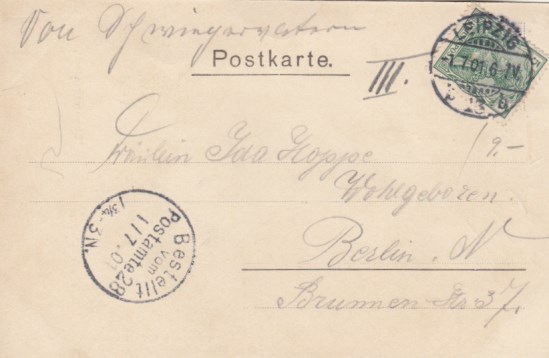 Von Schwiegervatern
Postkarte.
III.
LEIPZIG
-1.7.01. 6-7V.
13 b
9.-
Fräulein Ida Hoppe
Wohlgeboren.
Berlin. N
Brunnen-Str 37.
Bestellt
vom
Postamte 28
1/7.01
1¾-3N.